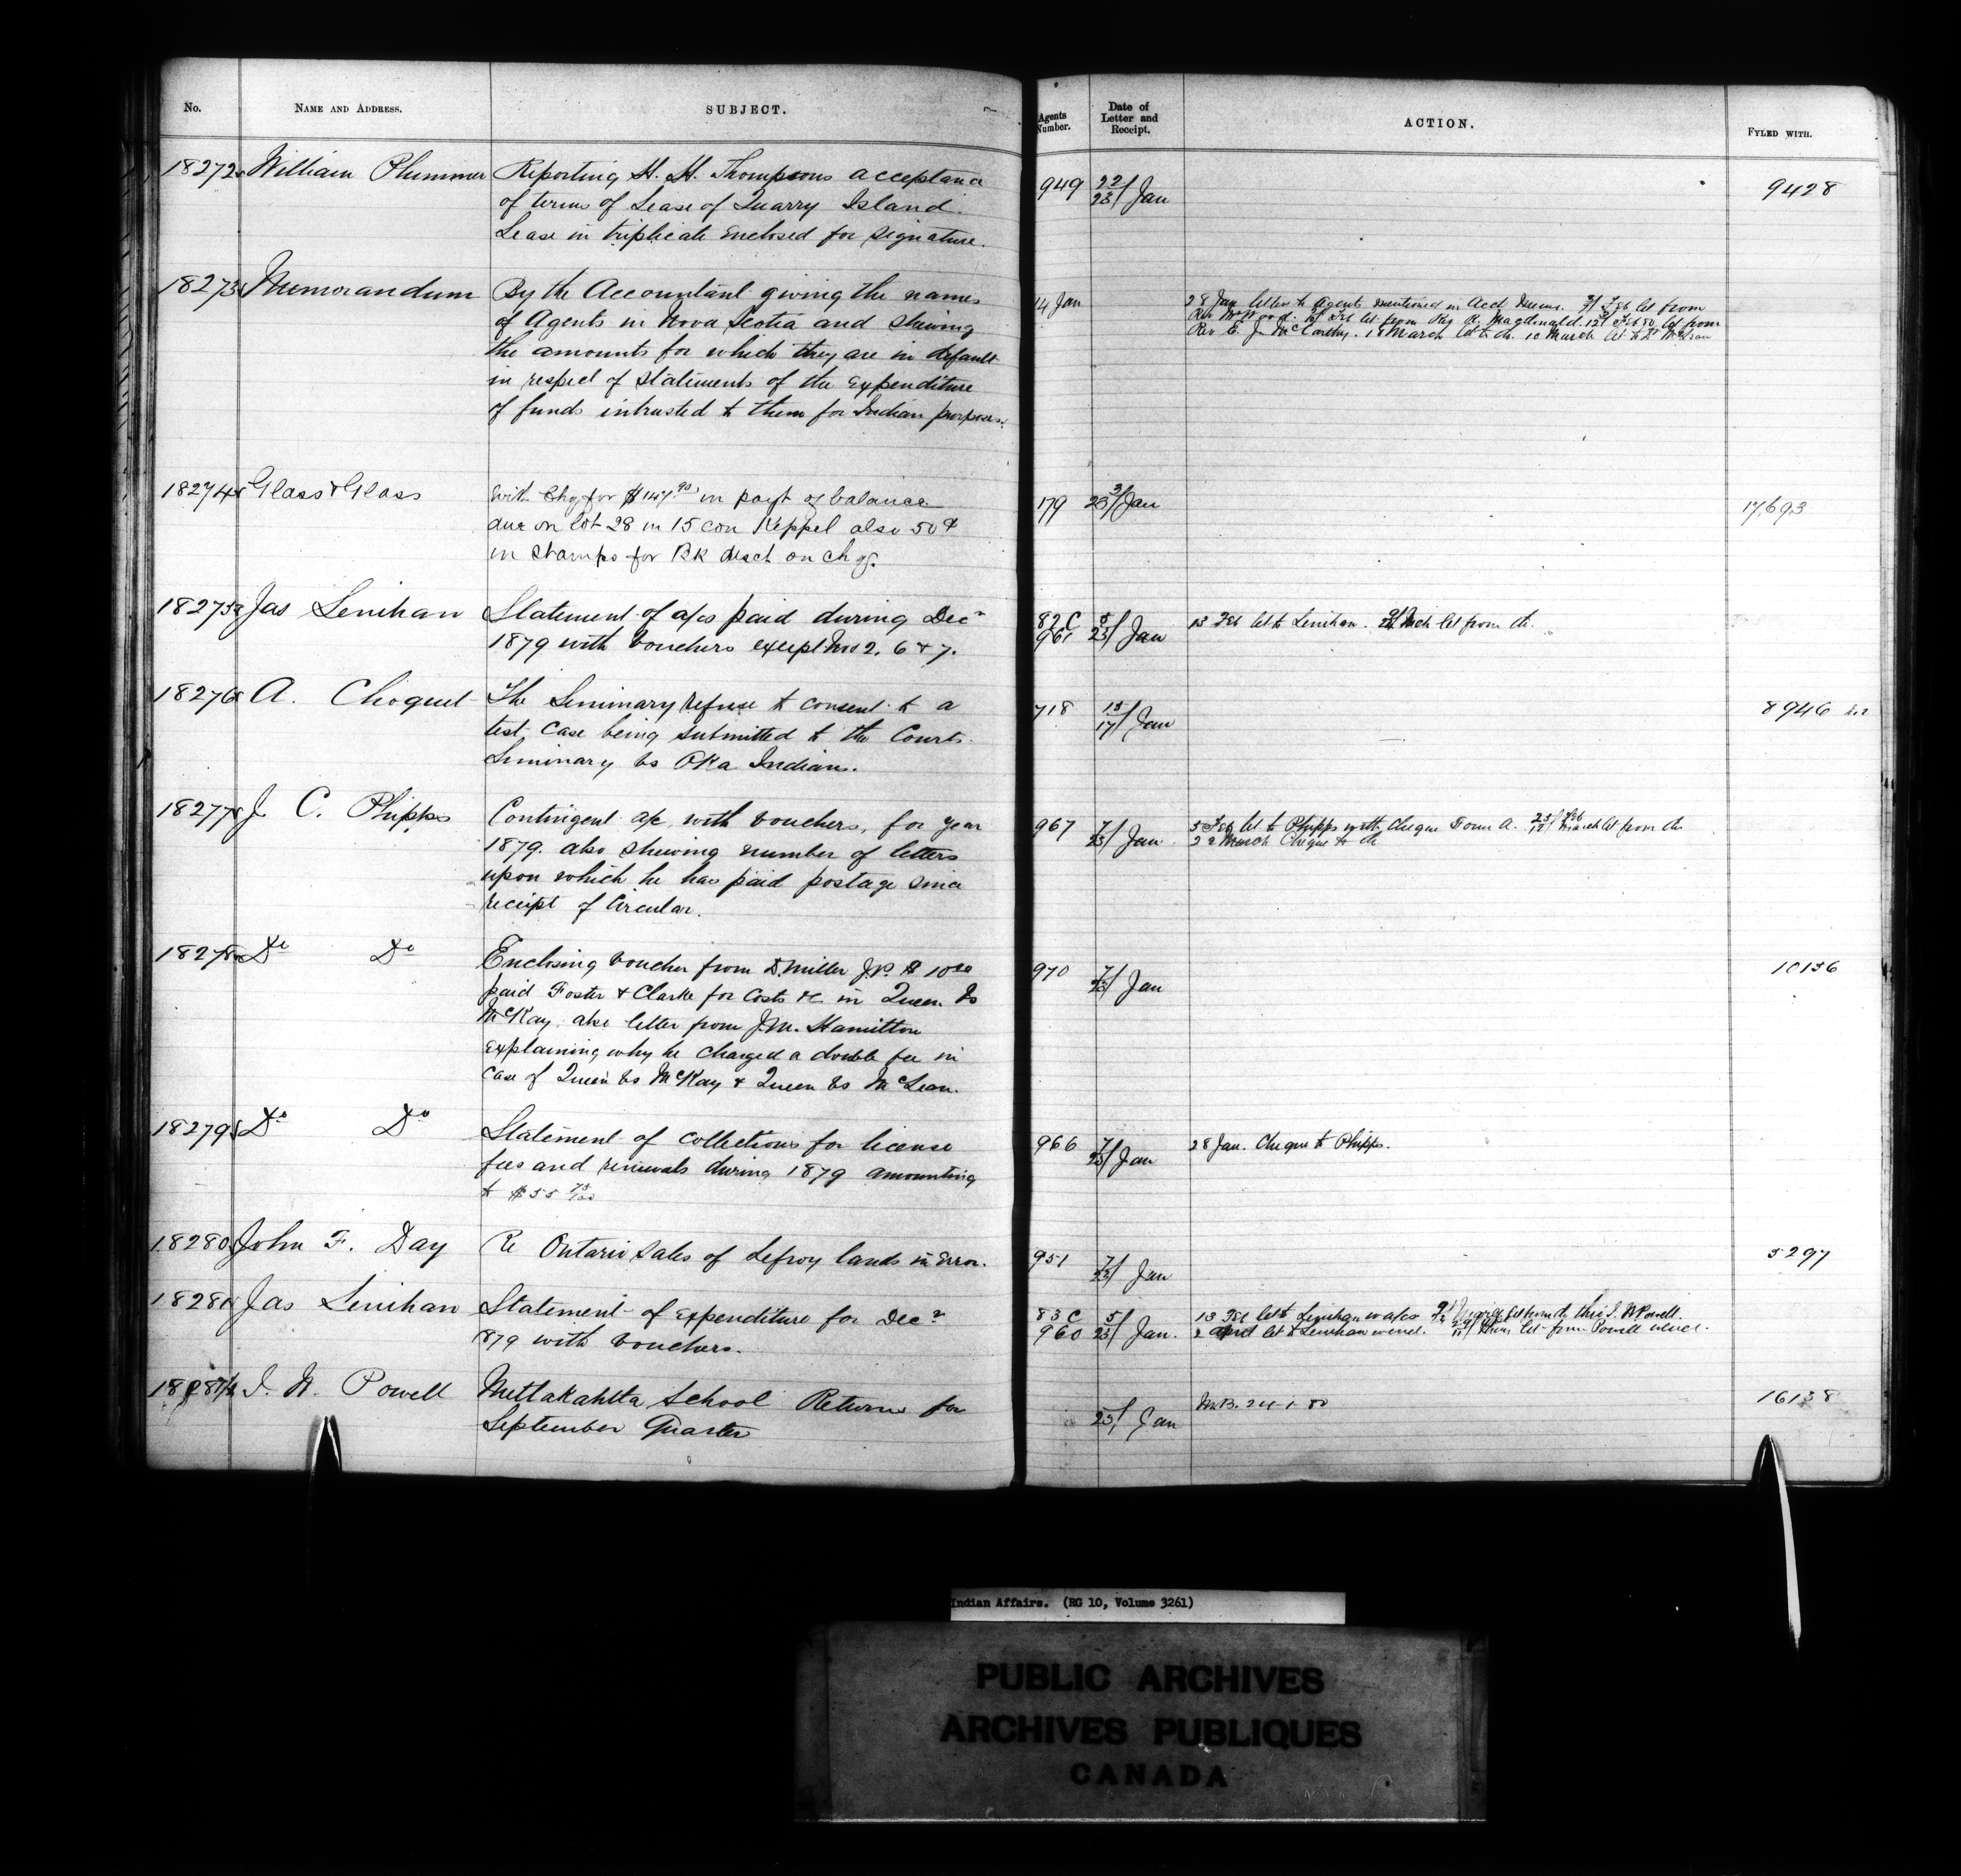 No.
NAME AND ADDRESS.
SUBJECT.
Agents Number.
Date of Letter and Receipt.
ACTION.
FYLED WITH.
18272 William Plummer Reporting H. H. Thompsons acceptance 949 22/23 Jan 9428
of terms of Lease of Quarry Island.
Lease in triplicate Enclosed for signature.
18273 Memorandum By the Accountant giving the names 14 Jan 28 Jan letter to Agents mentioned in Acct Memo. Feb let from
of Agents in Nova Scotia and shewing Rev Feb let from Rev R. Macdonald. 12 Feb 80 let from
the amounts for which they are in default Rev E. J. McCarthy. 18 March let to do. 10 March let to D McLean
in respect of Statements of the Expenditure
of funds intrusted to them for Indian purposes.
18274 Glass & Glass With Chq for $147.90 in payt of balance 179 23 Jan 17,693
due on lot 28 in 15 con Keppel also 50¢
in stamps for BK disct on chq.
18275 Jas Lenihan Statement of a/cs paid during Decr 82 C 961 5/23 Jan 13 Feb let to Lenihan. Mch let from do.
1879 with Vouchers except Nos 2. 6 & 7.
18276 A. Choquet The Seminary refuse to consent to a 718 15/17 Jan 8946
test case being submitted to the Courts.
Seminary vs Oka Indians.
18277 J C. Phipps Contingent a/c with vouchers, for year 967 7/23 Jan 5 Feb let to Phipps with Cheque Form A. 25 Feb/12 March let from do
1879. also shewing number of letters 22 March Cheque to do
upon which he has paid postage since
receipt of Circular.
18278 Do Do Enclosing voucher from D. Miller J.P. $10 970 7/23 Jan 10136
paid Foster & Clarke for costs &c in Queen Vs
McKay, also letter from J.M. Hamilton
explaining why he charged a double fee in
case of Queen vs McKay & Queen vs McLean.
18279 Do Do Statement of collections for license 966 7/23 Jan 28 Jan. Cheque to Phipps.
fees and renewals during 1879 amounting
to $55 75/100
18280 John F. Day Re Ontario Sales of Lefroy lands in Error. 951 7/23 Jan 5297
18281 Jas Lenihan Statement of Expenditure for Decr 83 C 960 5/23 Jan. 13 Feb let to Lenihan let from do thro I. W Powell.
1879 with Vouchers. 2 April let to Lenihan let from Powell
I. W. Powell Mettakahtta School Return for 23 Jan 24-1-80 16138
September Quarter
Indian Affairs. (RG 10, Volume 3261)
PUBLIC ARCHIVES
ARCHIVES PUBLIQUES
CANADA